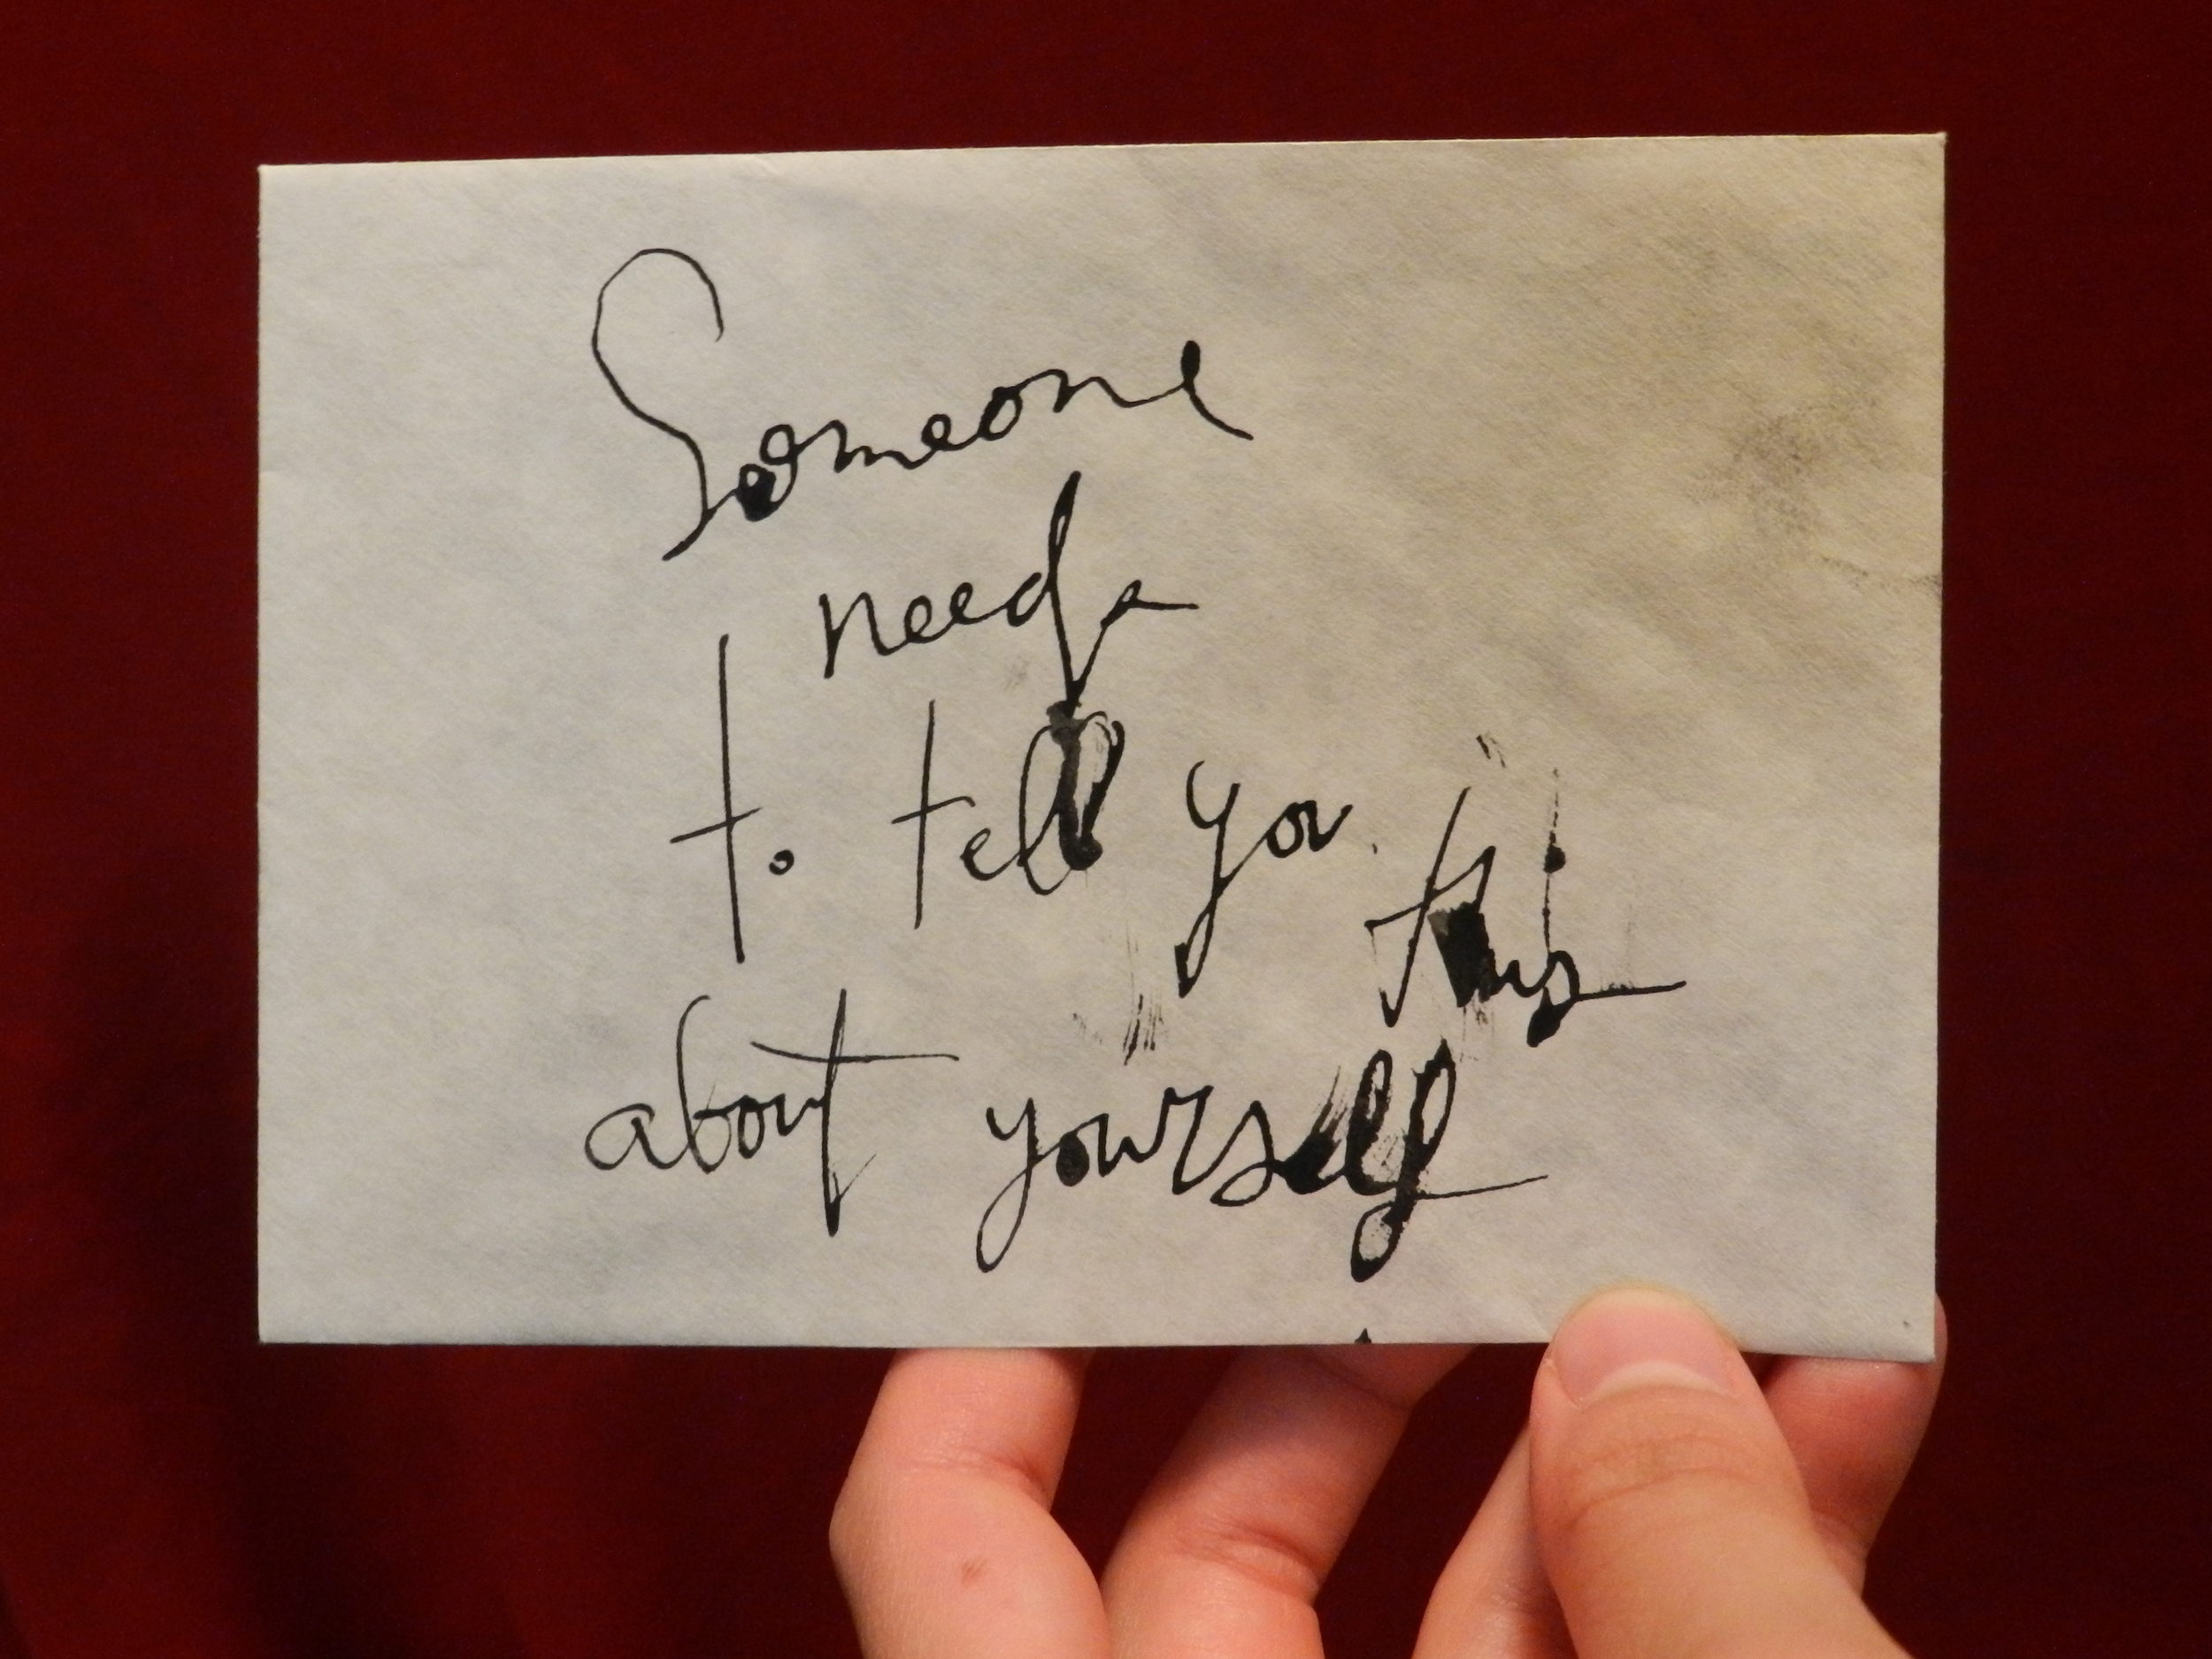 Someone
needs
to tell you this
about yourself